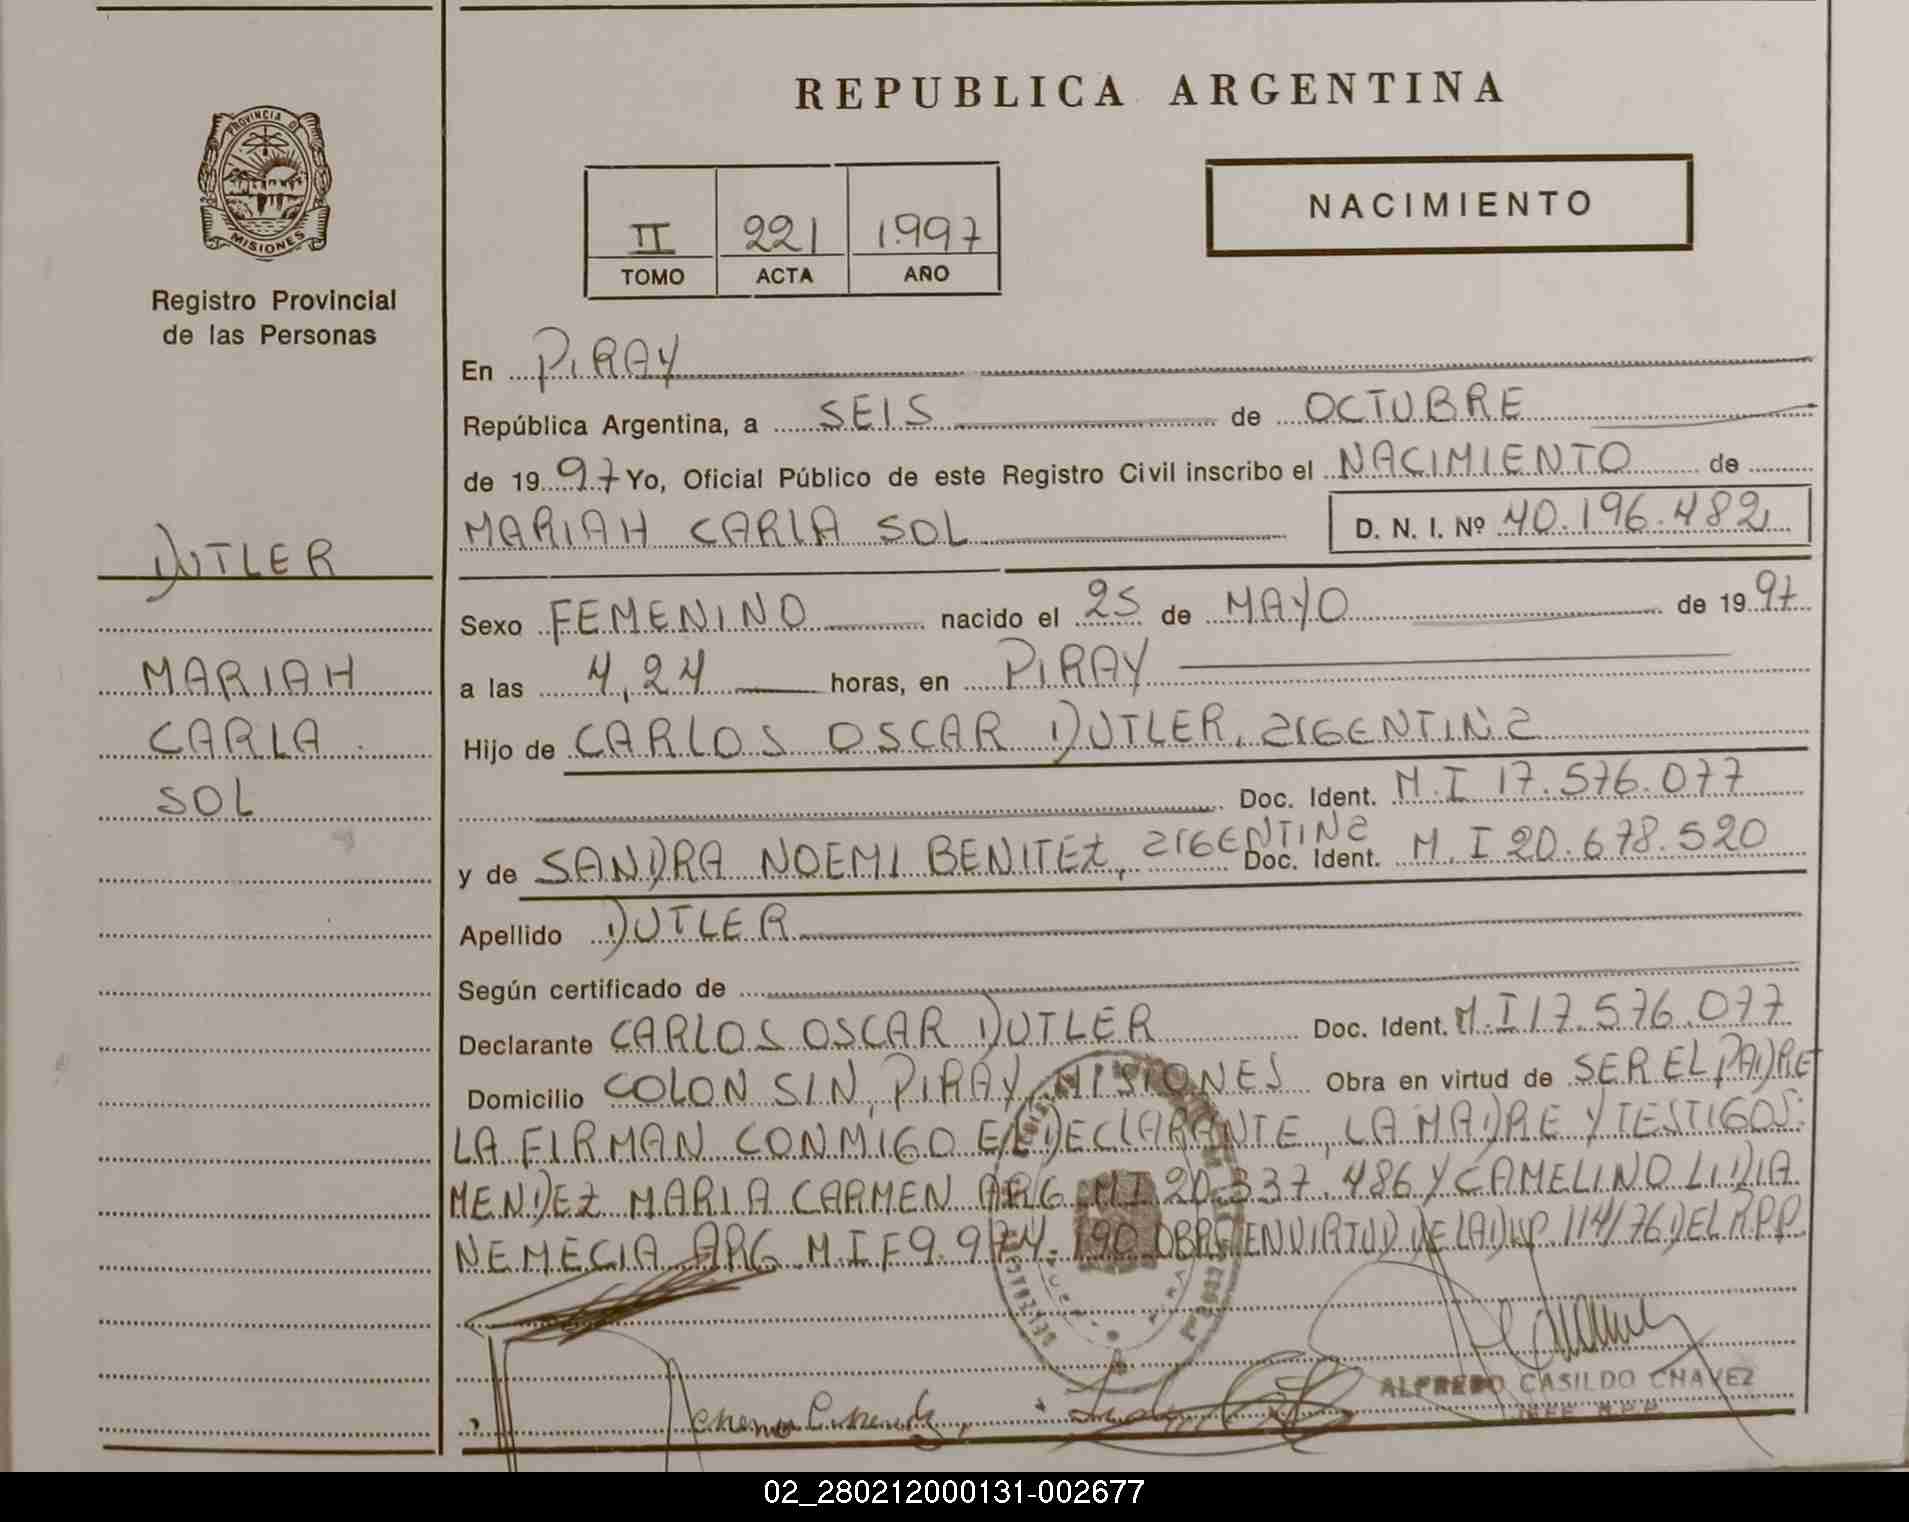 REPUBLICA ARGENTINA
PROVINCIA DE
MISIONES
Registro Provincial
de las Personas
II 221 1.997
TOMO ACTA AÑO
NACIMIENTO
DUTLER
MARIAH
CARLA
SOL
En PIRAY
República Argentina, a SEIS de OCTUBRE
de 1997 Yo, Oficial Público de este Registro Civil inscribo el NACIMIENTO de
MARIAH CARLA SOL D. N. I. Nº 40.196.482
Sexo FEMENINO nacido el 25 de MAYO de 1997
a las 4,24 horas, en PIRAY
Hijo de CARLOS OSCAR DUTLER, ARGENTINA
Doc. Ident. M.I 17.576.077
y de SANDRA NOEMI BENITEZ, ARGENTINA Doc. Ident. M.I 20.678.520
Apellido DUTLER
Según certificado de
Declarante CARLOS OSCAR DUTLER Doc. Ident. M.I 17.576.077
Domicilio COLON S/N, PIRAY, MISIONES Obra en virtud de SER EL PADRE
LA FIRMAN CONMIGO EL DECLARANTE, LA MADRE Y TESTIGOS:
MENDEZ MARIA CARMEN ARG MI 20.337.486 Y CAMELINO LIDIA
NEMECIA ARG M.I F9.974.190 OBRA EN VIRTUD DE LA 114/76 DEL R.P.P.
ALFREDO CASILDO CHAVEZ
JEFE R.P.P.
02_280212000131-002677